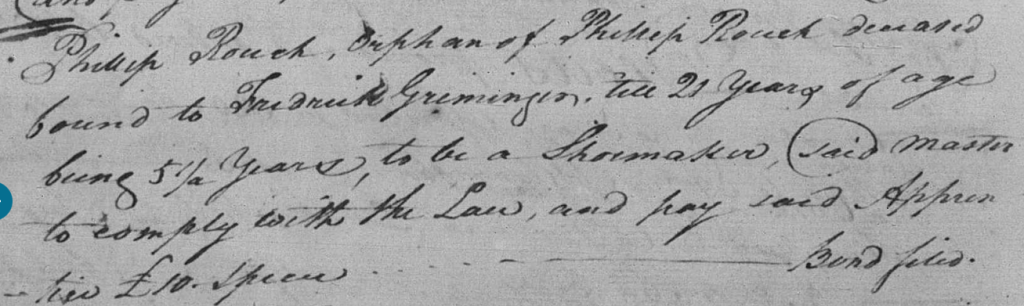 Phillip Rouch, Orphan of Phillip Rouch deceased
bound to Fredrick Griminger, till 21 Years of age
being 5 1/2 Years, to be a Shoemaker, (said Master
to comply with the Law, and pay said Appren
-tice £10. Specie - - - Bond filed.